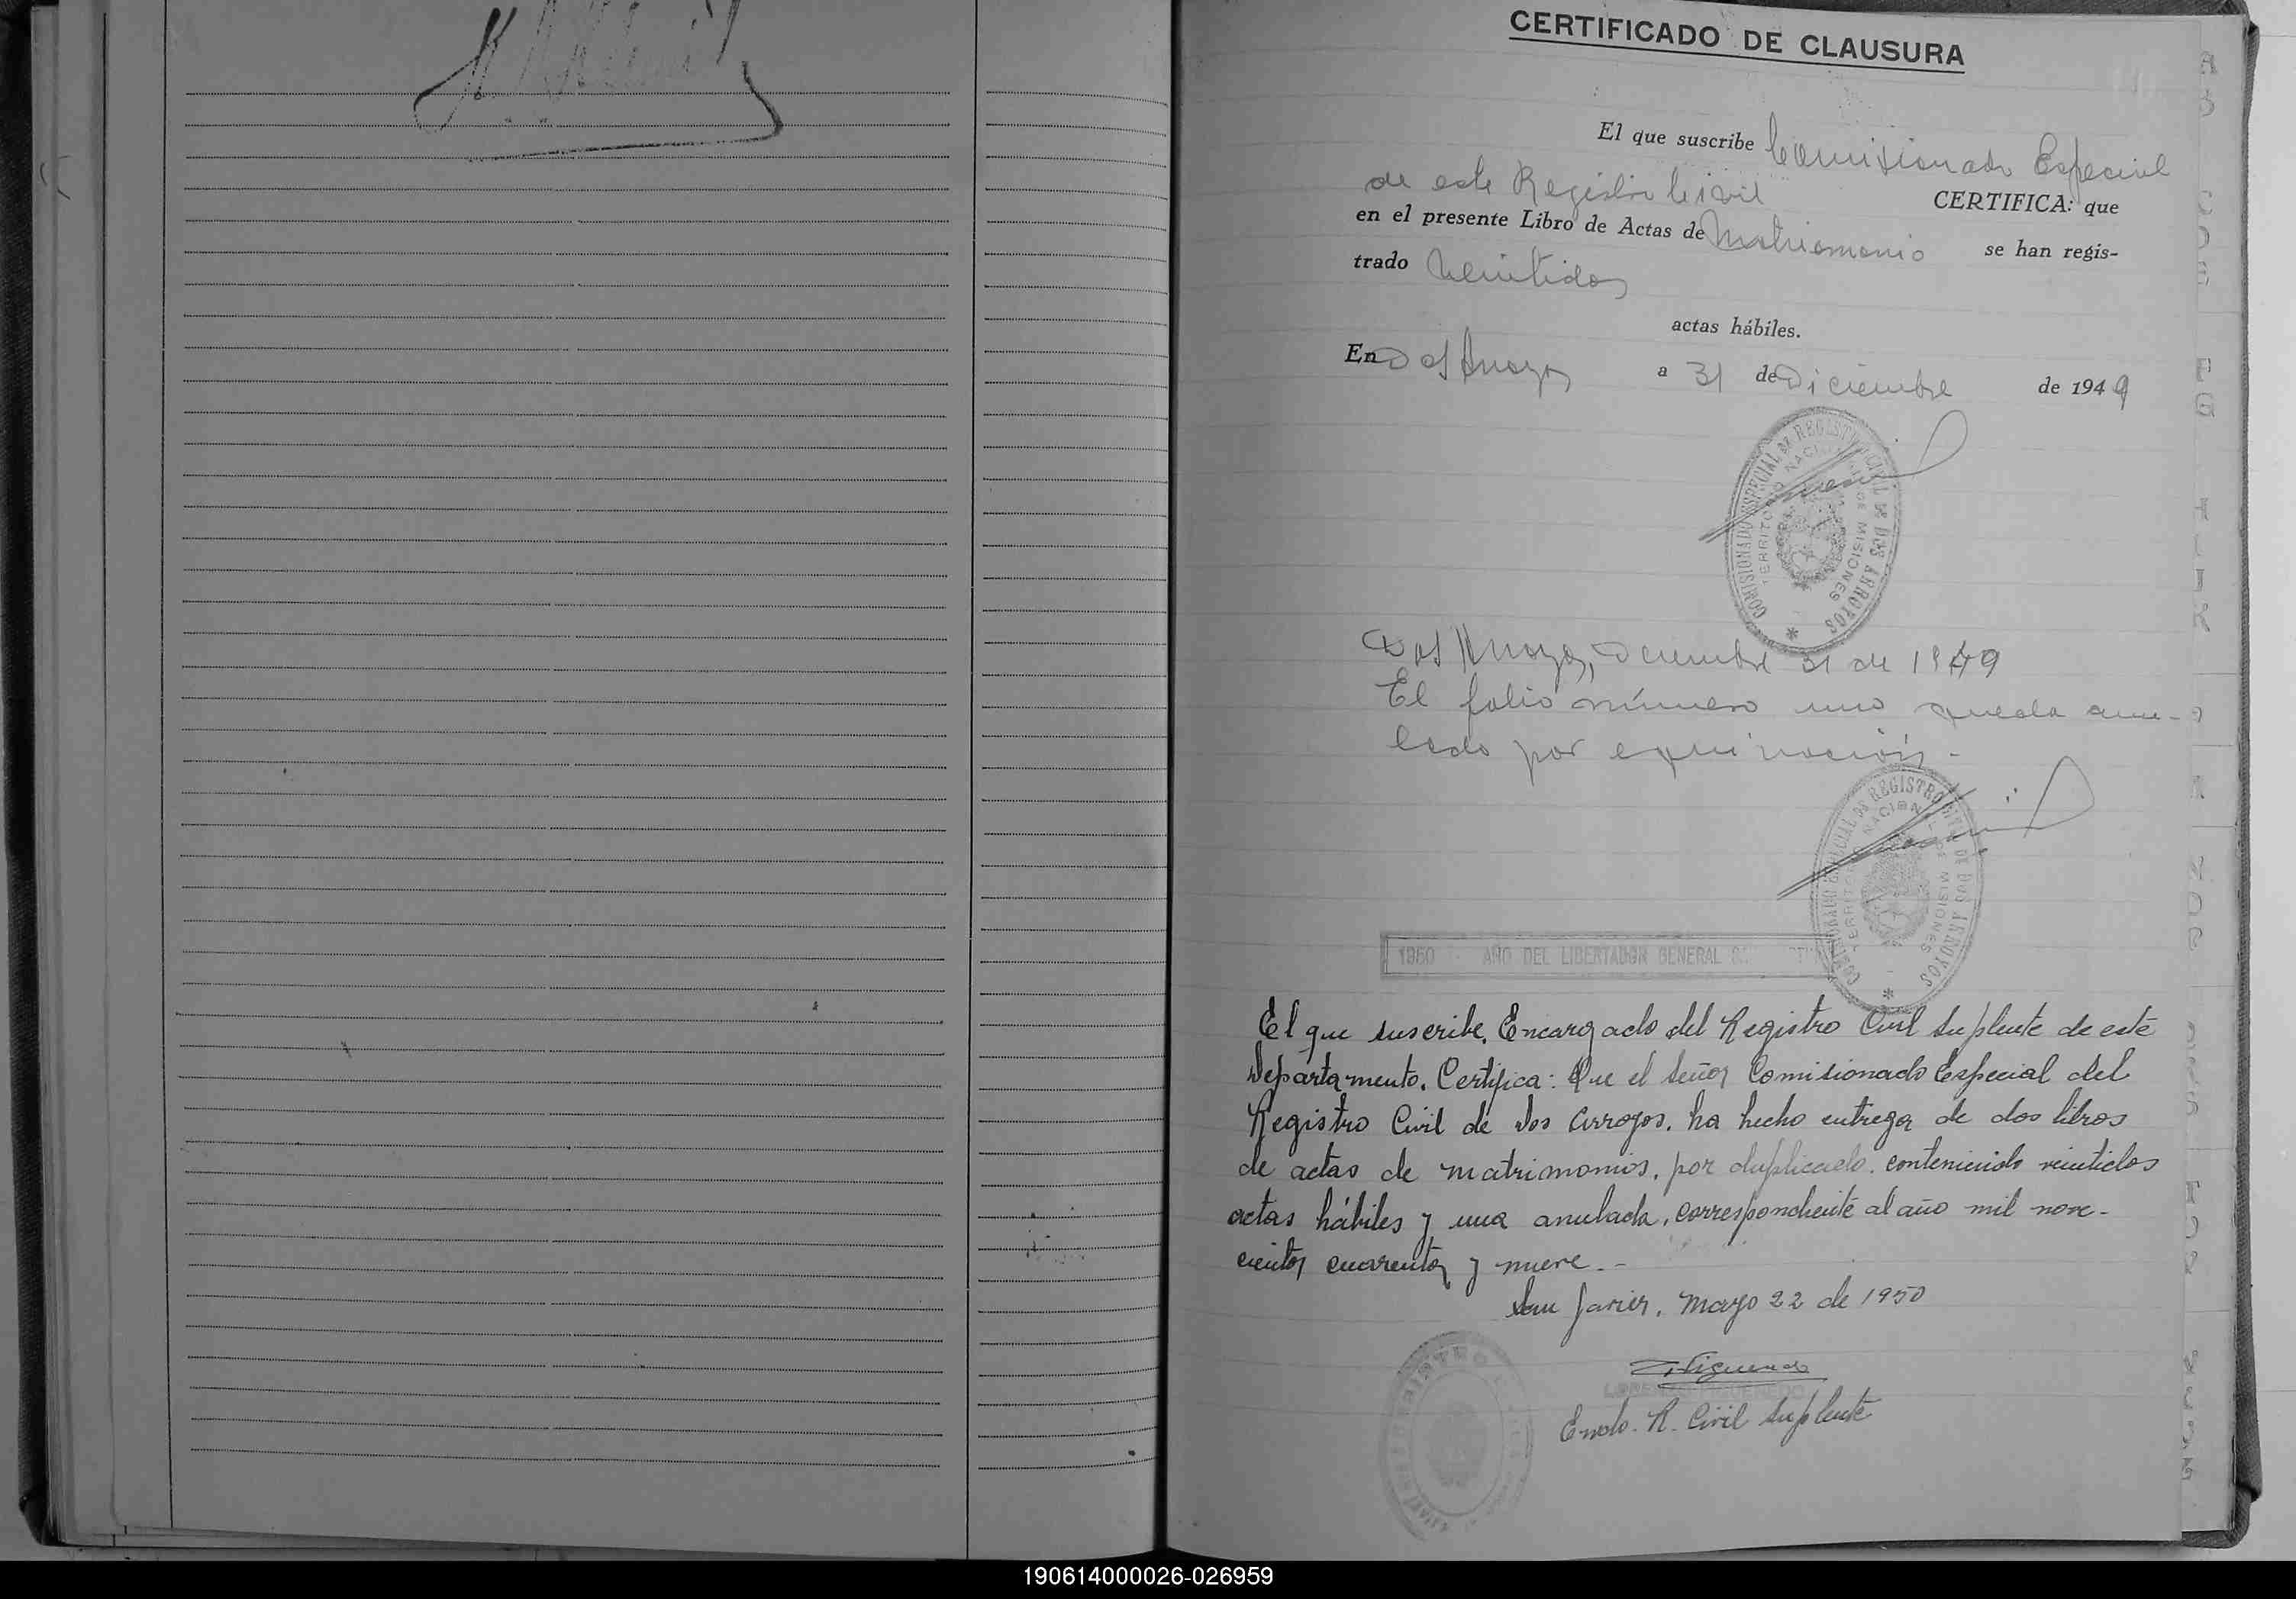 CERTIFICADO DE CLAUSURA
El que suscribe Comisionado Especial
de este Registro Civil CERTIFICA: que
en el presente Libro de Actas de Matrimonio se han regis-
trado Veintidos
actas hábiles.
En Dos Arroyos a 31 de Diciembre de 1949
COMISIONADO ESPECIAL DE REGISTRO CIVIL DE DOS ARROYOS
TERRITORIO NACIONAL DE MISIONES
Dos Arroyos, Diciembre 31 de 1949
El folio número uno queda anu-
lado por equivocación.-
COMISIONADO ESPECIAL DE REGISTRO CIVIL DE DOS ARROYOS
TERRITORIO NACIONAL DE MISIONES
1950 AÑO DEL LIBERTADOR GENERAL
El que suscribe, Encargado del Registro Civil Suplente de este
Departamento. Certifica: Que el Señor Comisionado Especial del
Registro Civil de Dos Arroyos, ha hecho entrega de dos libros
de actas de matrimonios, por duplicado, conteniendo veintidos
actas hábiles y una anulada, correspondiente al año mil nove-
cientos cuarenta y nueve.-
San Javier, Mayo 22 de 1950
Encdo. R. Civil Suplente
190614000026-026959